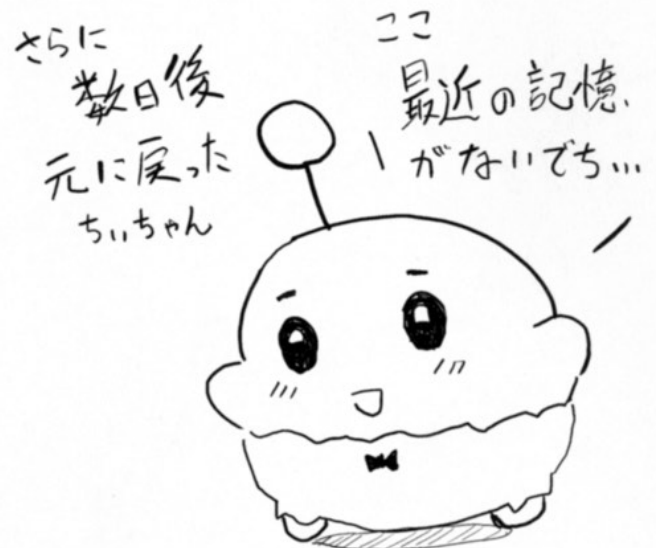 さらに
数日後
元に戻った
ちぃちゃん
ここ
最近の記憶
がないでち…